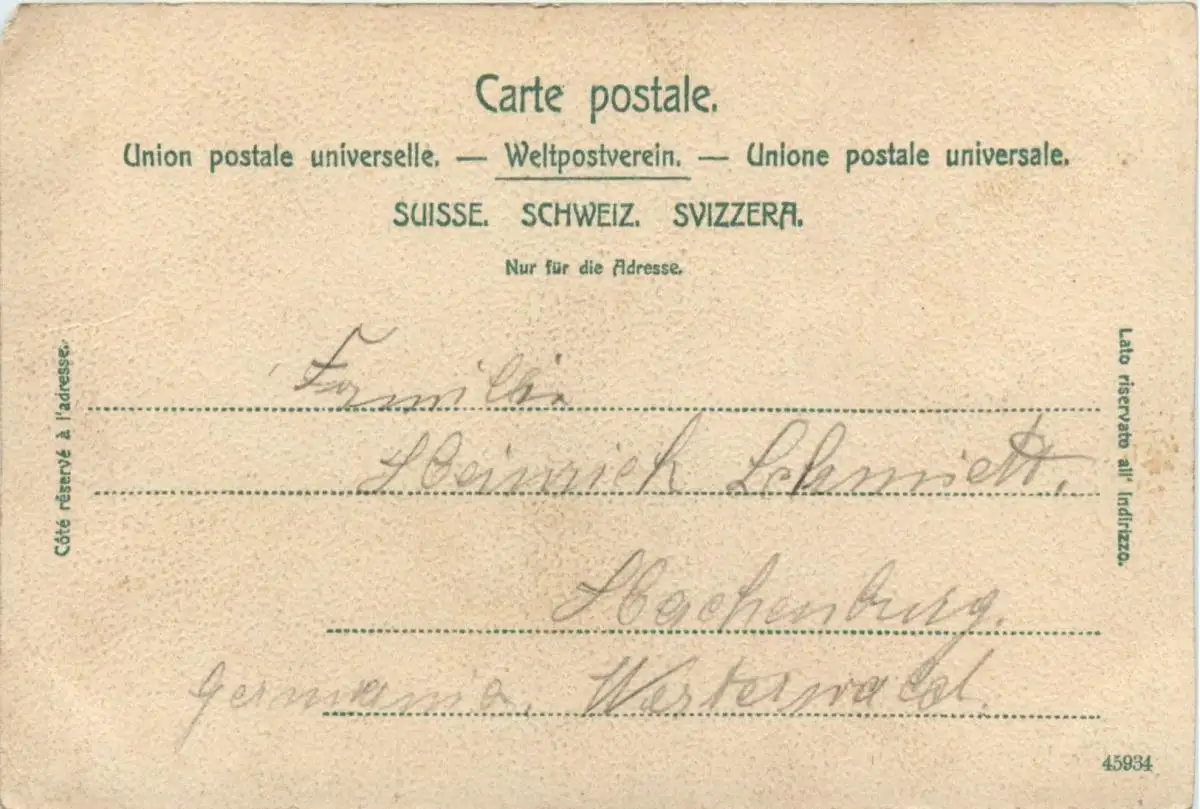 Carte postale.
Union postale universelle. — Weltpostverein. — Unione postale universale.
SUISSE. SCHWEIZ. SVIZZERA.
Nur für die Adresse.
Côté réservé à l'adresse.
Lato riservato all' indirizzo.
Familie
Heinrich Schmidt.
Hachenburg.
Germania. Westerwald.
45934